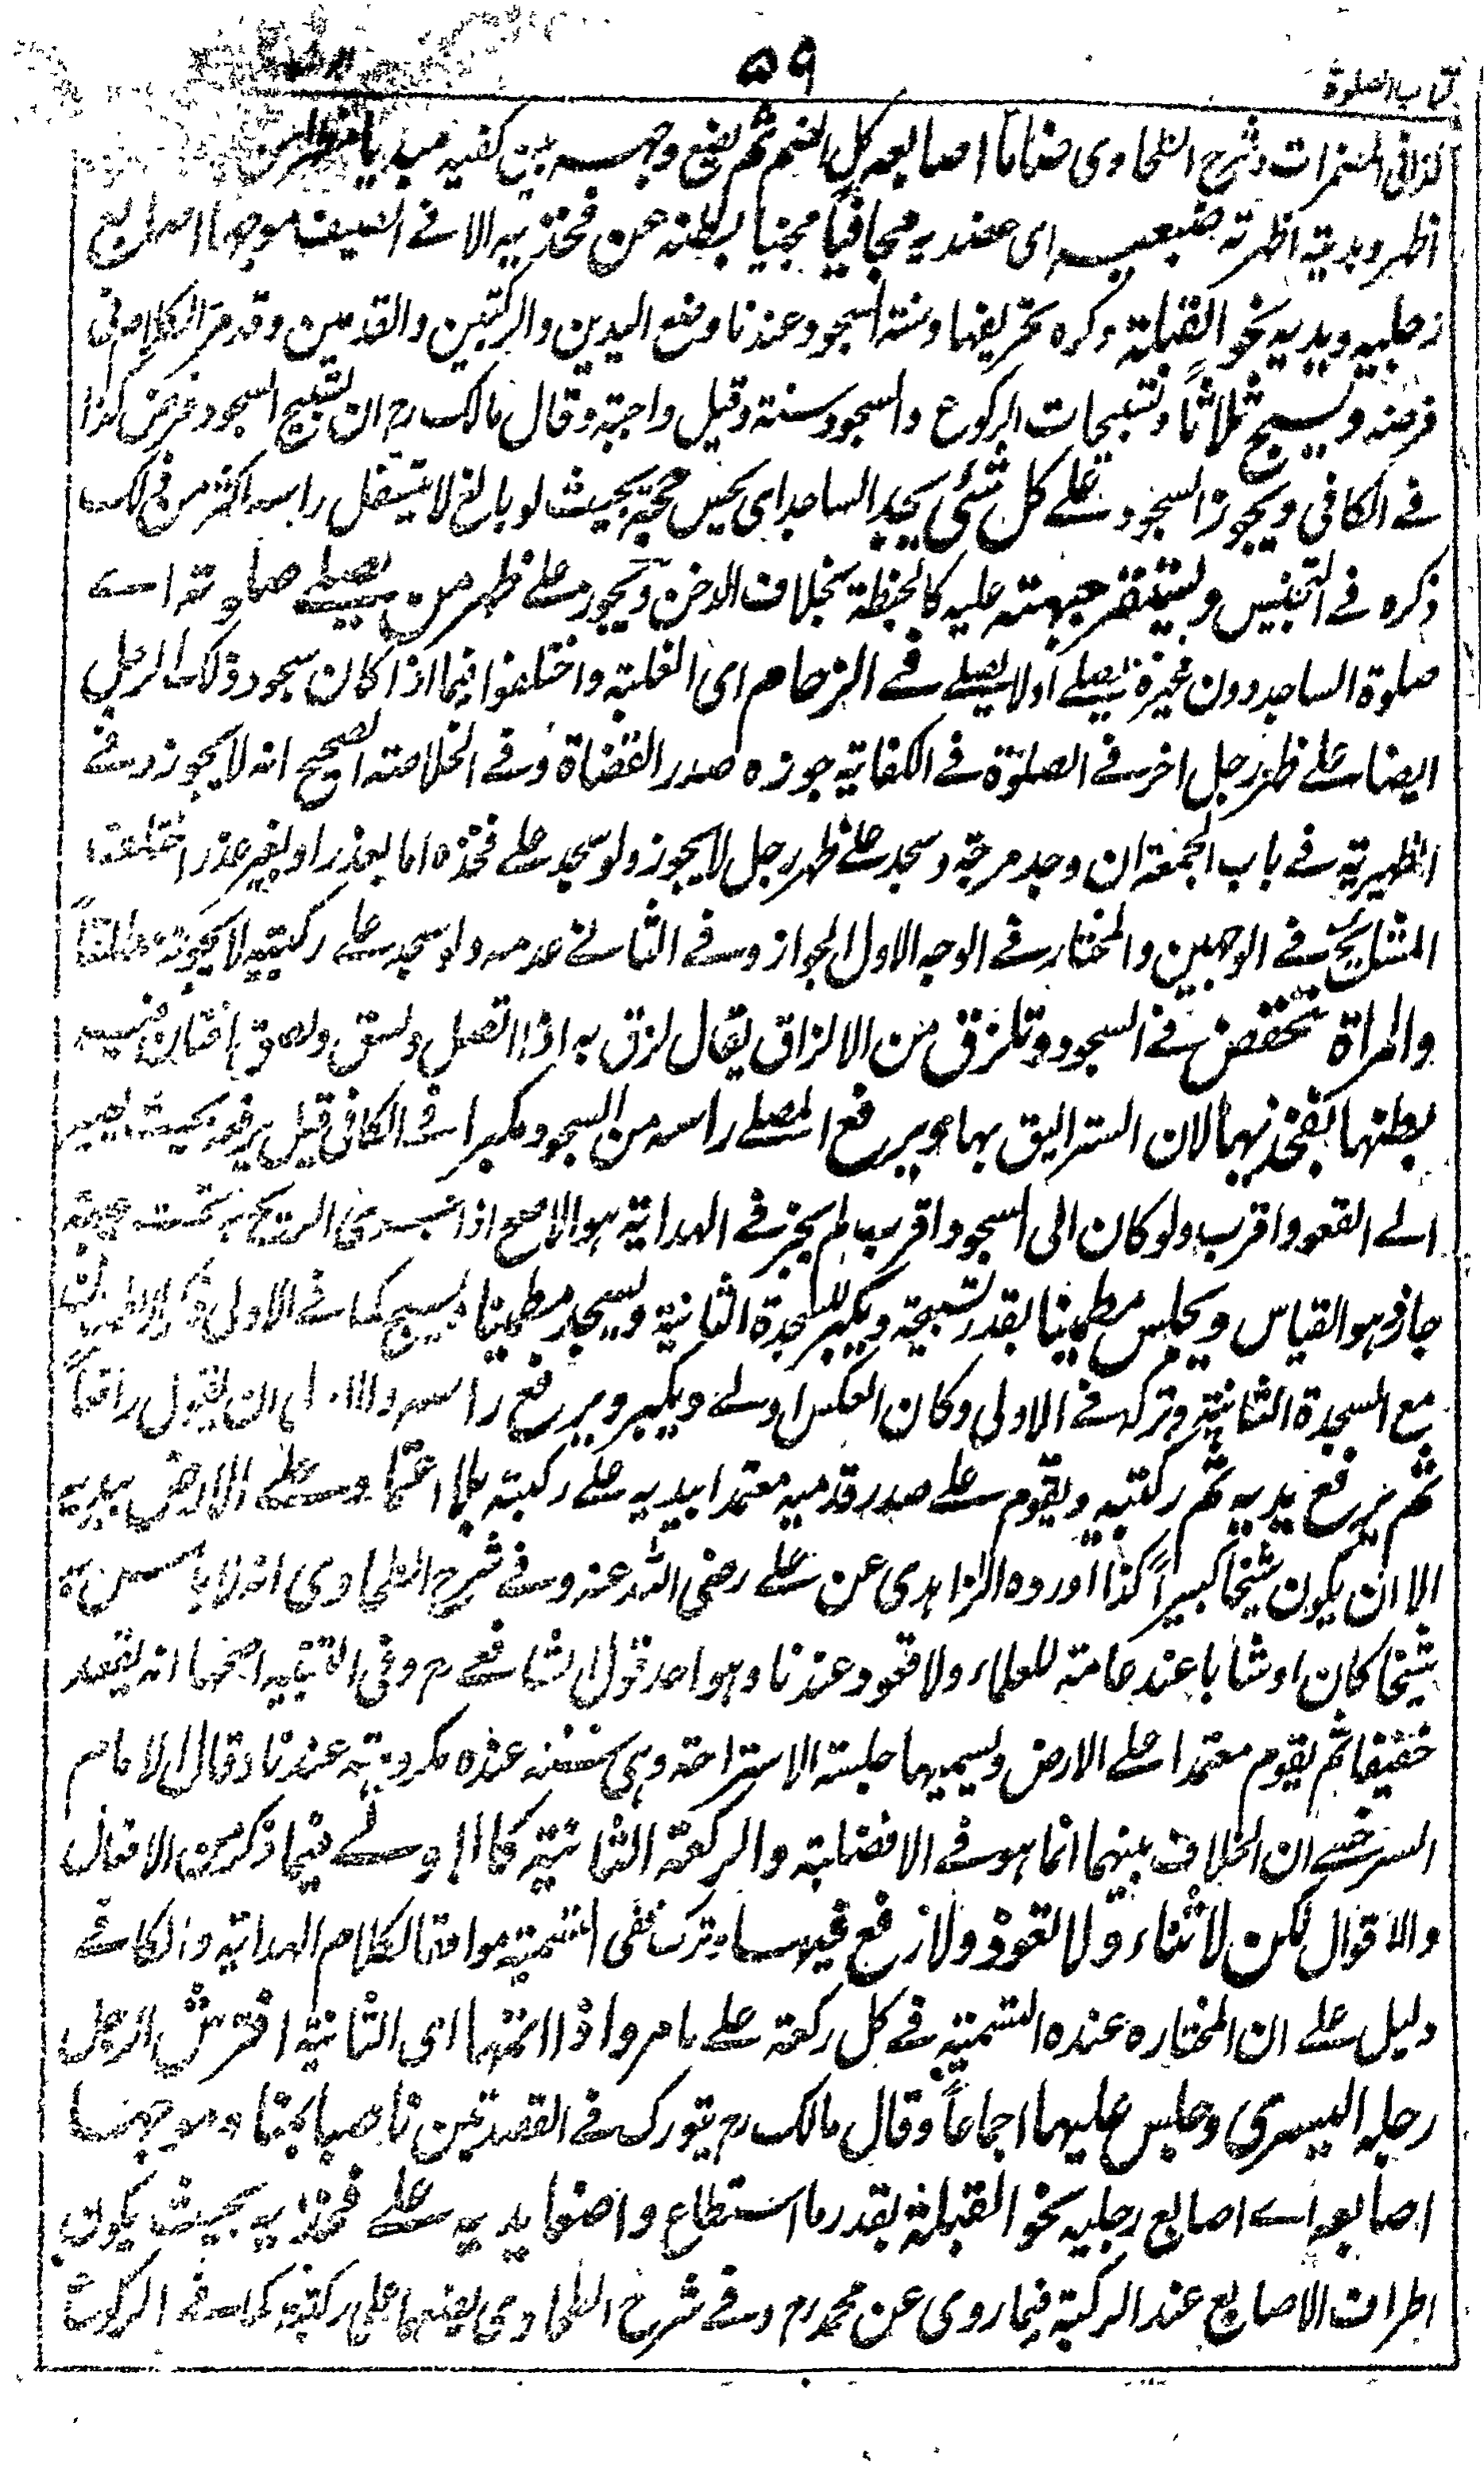 كتاب الصلوة
٥٩
كذا في المضمرات وشرح الطحاوي ضاما اصابعه كل الضم ثم يضع وجهه بين كفيه مبديا
اظهر ويديته اظهرته ضبعيه اى عضديه مجافيا مجنبا بطنه عن فخذيه الا في الصيف موجها اصابع
رجليه ويديه نحو القبلة وكره تحريفها وسنة السجود عندنا وضع اليدين والركبتين والقدمين وقد مر الكلام في
فرضه ويسبح ثلاثا وتسبيحات الركوع والسجود سنة وقيل واجبة وقال مالك رح ان تسبيح السجود فرض كذا
في الكافي ويجوز السجود على كل شئ يجد الساجد اى يحس حجمه بحيث لو بالغ لا يتسفل راسه اكثر من ذلك
ذكره في التجنيس ويستقر جبهته عليه كالحنطة بخلاف الدخن ويجوز على ظهر من يصلي صلوته اے
صلوة الساجد دون غيره يصلي اولا يصلي في الزحام اى الغلبة واختلفوا فيما اذا كان سجود ذلك الرجل
ايضا على ظهر رجل اخر في الصلوة في الكفاية جوزه صدر القضاة وفي الخلاصة الصحيح انه لا يجوز وفي
الظهيرية في باب الجمعة ان وجد فرجة وسجد على ظهر رجل لا يجوز ولو سجد على فخذه اما بعذر او بغير عذر اختلف
المشايخ في الوجهين والمختار في الوجه الاول الجواز وفي الثاني عدمه ولو سجد على ركبتيه لا يجوز مطلقا
والمراة تنخفض في السجود وتلزق من الالزاق يقال لزق به اذا اتصل ولسق ولصق
بطنها بفخذيها لان الستر اليق بها ويرفع المصلي راسه من السجود مكبرا في الكافي قيل يرفعه بحيث يصير
الى القعود اقرب ولو كان الى السجود اقرب لم يجز في الهداية هو الاصح
جاز وهو القياس ويجلس مطمينا بقدر تسبيحة ويكبر للسجدة الثانية ويسجد مطمينا ويسبح كما في الاولى
مع السجدة الثانية وتركه في الاولى وكان العكس اولے ويكبر ويرفع راسه ان يقول رافعا
ثم يرفع يديه ثم ركبتيه ويقوم على صدر قدميه معتمدا بيديه على ركبته بلا اعتماد على الارض بيديه
الا ان يكون شيخا كبيرا كذا اورده الزاهدي عن علي رضى الله عنه وفي شرح الطحاوي انه لا باس به
شيخا كان او شابا عند عامة العلماء ولا قعود عندنا وهو احد قولي الشافعي رح وفي القنية اصحهما انه يقعد
خفيفا ثم يقوم معتمدا على الارض ويسميها جلسة الاستراحة وهي سنة عنده مكروهة عندنا وقال الامام
السرخسي ان الخلاف بينهما انما هو في الافضلية والركعة الثانية كالاولے فيما ذكر من الافعال
والاقوال لكن لا ثناء ولا تعوذ ولا رفع فيها وترك نفى التسمية موافقا لكلام الهداية والكافي
دليل على ان المختار عنده التسمية في كل ركعة على ما مر واذا اتمها اى الثانية افترش الرجل
رجله اليسرى وجلس عليها اجماعا وقال مالك رح يتورك في القعدتين ناصبا يمناه وموجها
اصابعه اے اصابع رجليه نحو القبلة بقدر ما استطاع واضعا يديه على فخذيه بحيث يكون
اطراف الاصابع عند الركبة فيما روى عن محمد رح وفي شرح الطحاوي يضعهما على ركبتيه كما في الركوع